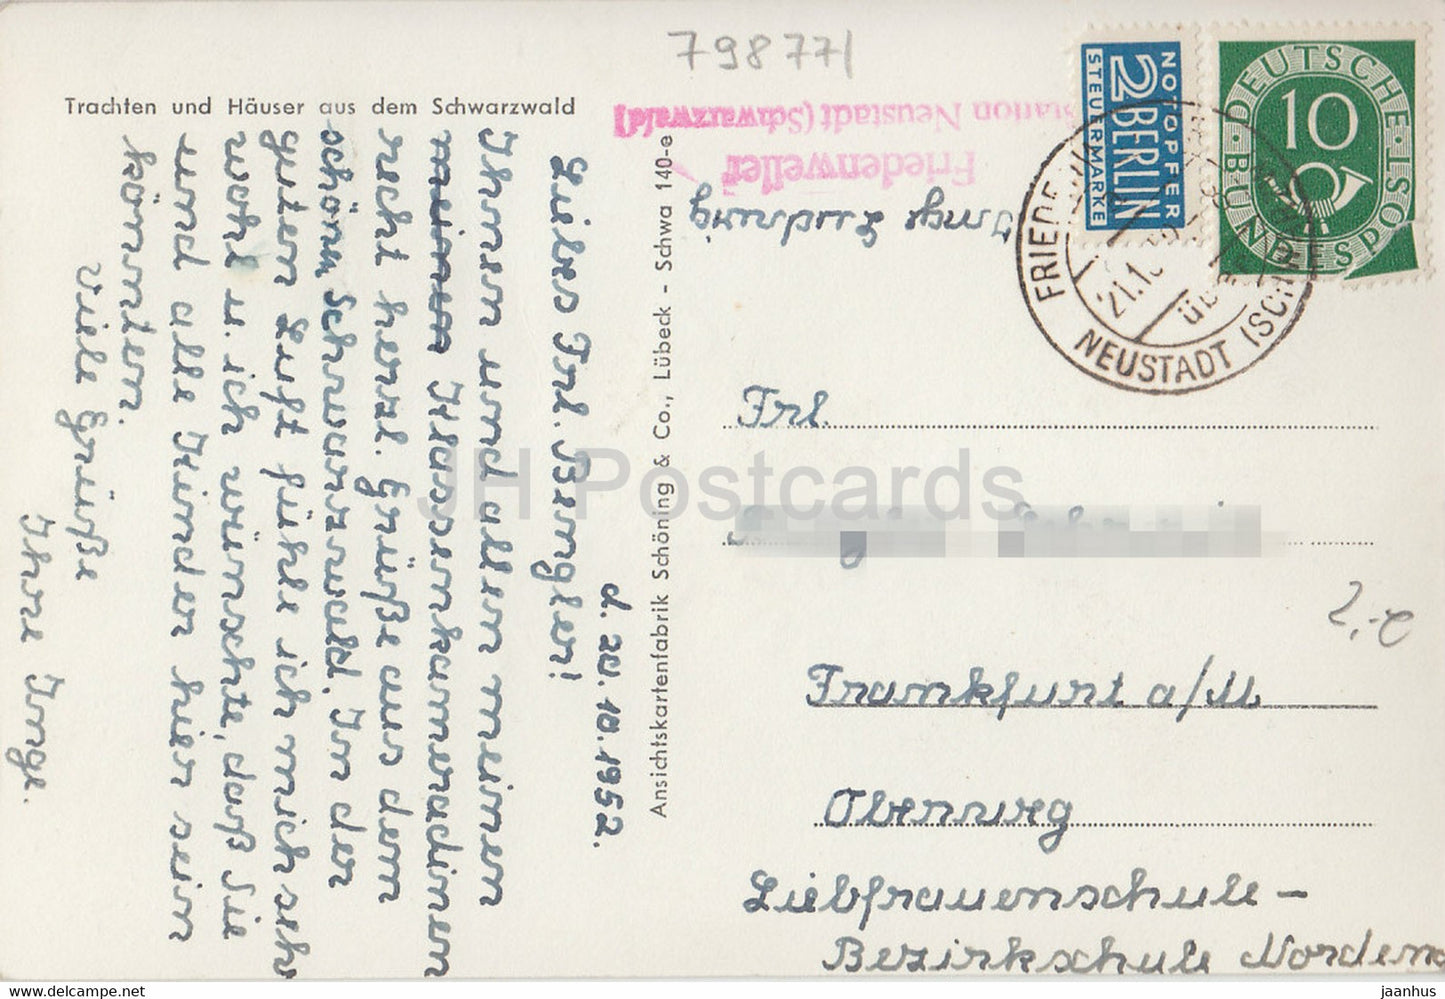 798771
Trachten und Häuser aus dem Schwarzwald
d. 20.10.1952.
Liebes Frl. Bengler!
Ihnen und allen meinen
meinen Klassenkameradinen
recht herzl. Grüße aus dem
schönn Schwarzwald. In der
guten Luft fühle ich mich seh
wohl u. ich wünschte, daß Sie
und alle Kinder hier sein
könnten.
Viele Grüße
Ihre Inge.
Ansichtskartenfabrik Schöning & Co., Lübeck - Schwa 140-e
Friedenweiler
Station Neustadt (Schwarzwald)
Inge
NOTOPFER
2 BERLIN
STEUERMARKE
DEUTSCHE
BUNDESPOST
10
FRIEDENWEILER
21.10
ÜBER
NEUSTADT (SCHWARZW
Frl.
Frankfurt a/M
Oberweg
Liebfrauenschule -
Bezirkschule Norden
2,-e
JH Postcards
www.hippostcard.com
jaanhus